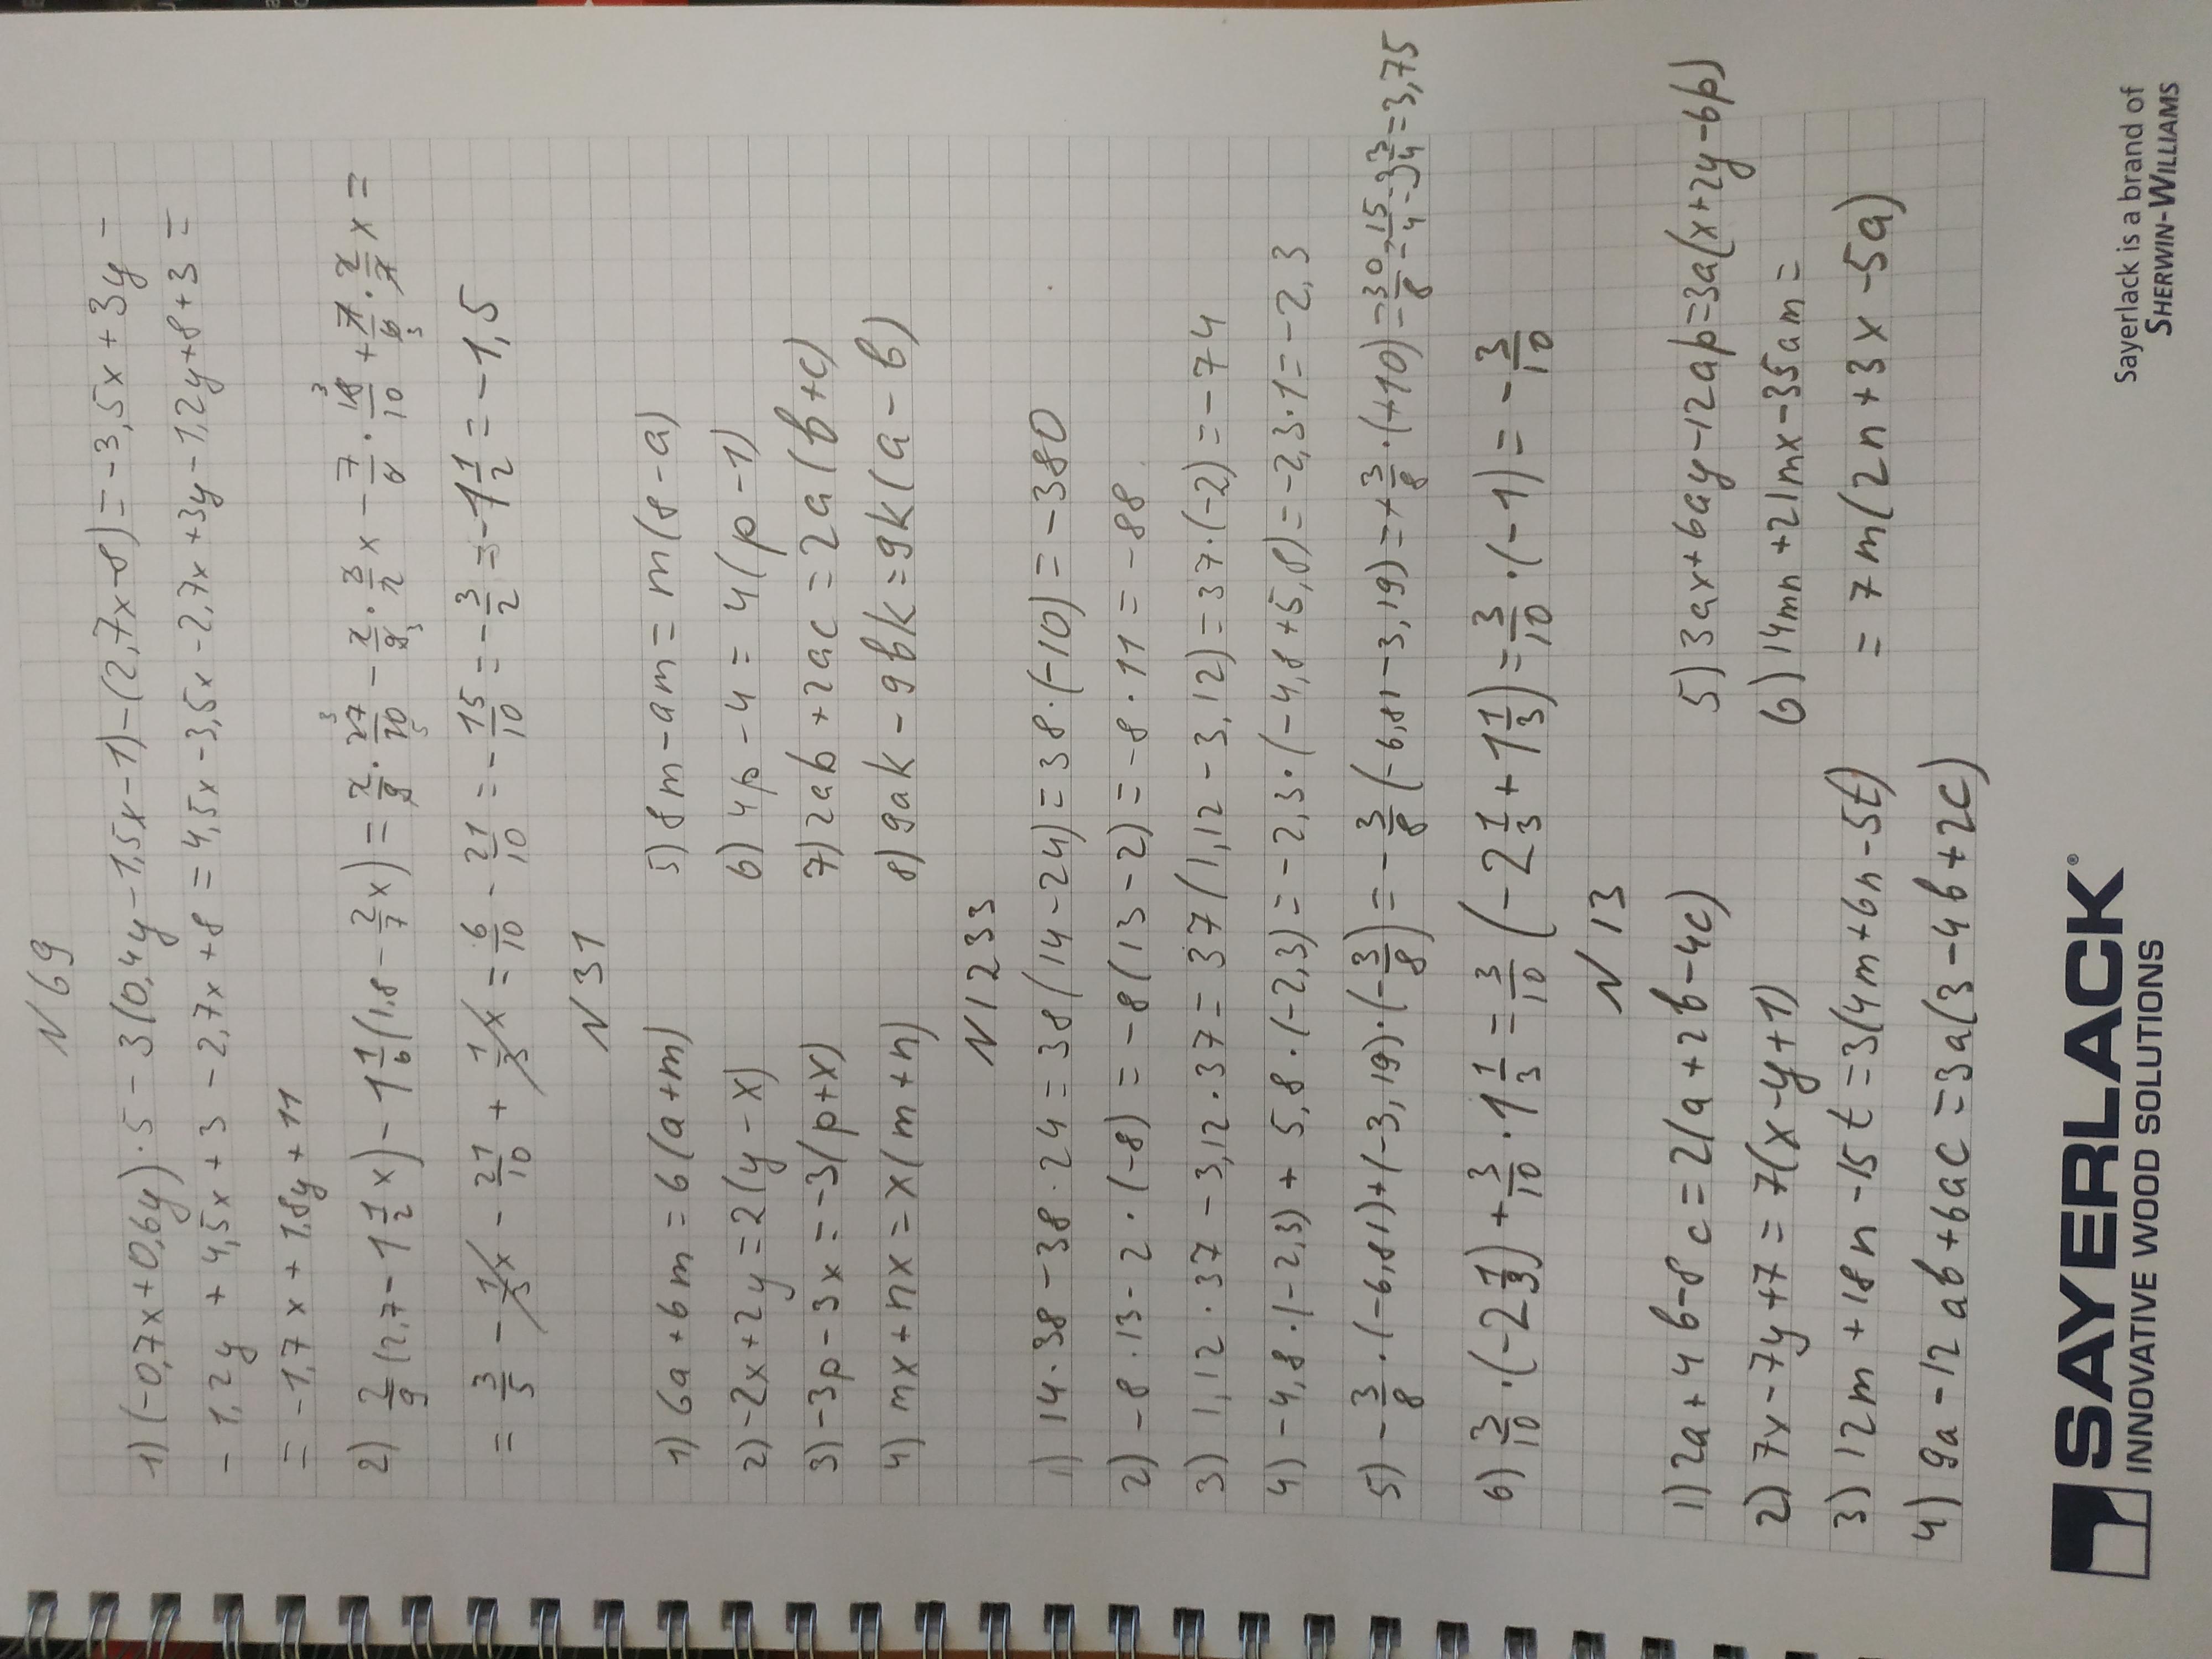 N 69
1) (-0,7x+0,6y)·5 - 3(0,4y-1,5x-1)-(2,7x-8)=-3,5x+3y-
-1,2y+4,5x+3-2,7x+8=4,5x-3,5x-2,7x+3y-1,2y+8+3=
=-1,7x+1,8y+11
2) 2/9(2,7-1 1/2 x)-1 1/6(1,8-2/7 x)=2/9·27/10-2/9·3/2 x-7/6·18/10+7/6·2/7 x=
=3/5-1/3 x-21/10+1/3 x=6/10-21/10=-15/10=-3/2=-1 1/2=-1,5
N 31
1) 6a+6m=6(a+m)
2) -2x+2y=2(y-x)
3) -3p-3x=-3(p+x)
4) mx+nx=x(m+n)
5) 8m-am=m(8-a)
6) 4p-4=4(p-1)
7) 2ab+2ac=2a(b+c)
8) 9ak-9bk=9k(a-b)
N 1233
1) 14·38-38·24=38(14-24)=38·(-10)=-380
2) -8·13-2·(-8)=-8(13-2)=-8·11=-88
3) 1,12·37-3,12·37=37(1,12-3,12)=37·(-2)=-74
4) -4,8·(-2,3)+5,8·(-2,3)=-2,3·(-4,8+5,8)=-2,3·1=-2,3
5) -3/8·(-6,81)+(-3,19)·(-3/8)=-3/8(-6,81-3,19)=+3/8·(+10)=30/8=15/4=3 3/4=3,75
6) 3/10·(-2 1/3)+3/10·1 1/3=3/10(-2 1/3+1 1/3)=3/10·(-1)=-3/10
N 13
1) 2a+4b-8c=2(a+2b-4c)
2) 7x-7y+7=7(x-y+1)
3) 12m+18n-15t=3(4m+6n-5t)
4) 9a-12ab+6ac=3a(3-4b+2c)
5) 3ax+6ay-12ap=3a(x+2y-6p)
6) 14mn+21mx-35am=
=7m(2n+3x-5a)
SAYERLACK®
INNOVATIVE WOOD SOLUTIONS
Sayerlack is a brand of
SHERWIN-WILLIAMS